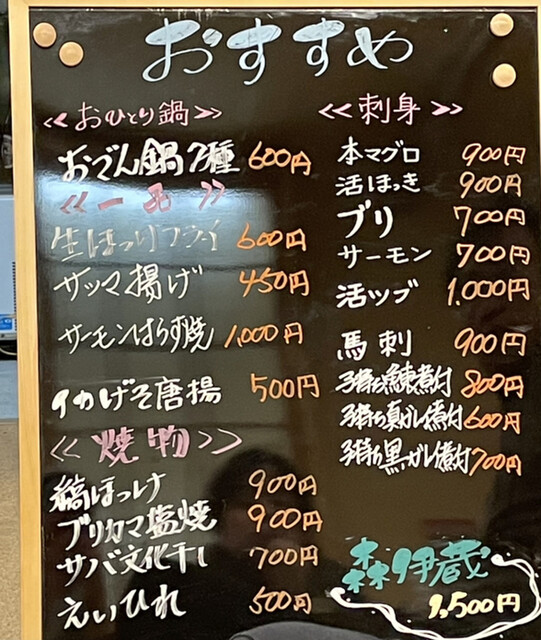 おすすめ
<<おひとり鍋>>
おでん鍋2種 600円
<<一品>>
生ほっけフライ 600円
サツマ揚げ 450円
サーモンはらす焼 1,000円
イカげそ唐揚 500円
<<焼物>>
縞ほっけ 900円
ブリカマ塩焼 900円
サバ文化干し 700円
えいひれ 500円
<<刺身>>
本マグロ 900円
活ほっき 900円
ブリ 700円
サーモン 700円
活ツブ 1,000円
馬刺 900円
子持ち煮付 800円
子持ち真がし煮付 600円
子持ち黒がし煮付 700円
森伊蔵
1,500円